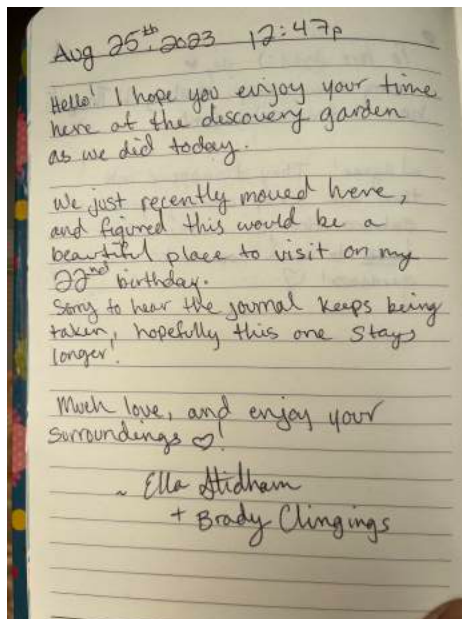 Aug 25th, 2023 12:47p
Hello! I hope you enjoy your time
here at the discovery garden
as we did today.
We just recently moved here,
and figured this would be a
beautiful place to visit on my
22nd birthday.
Sorry to hear the journal keeps being
taken, hopefully this one stays
longer.
Much love, and enjoy your
surroundings ♡!
~ Ella Stidham
+ Brady Clingings